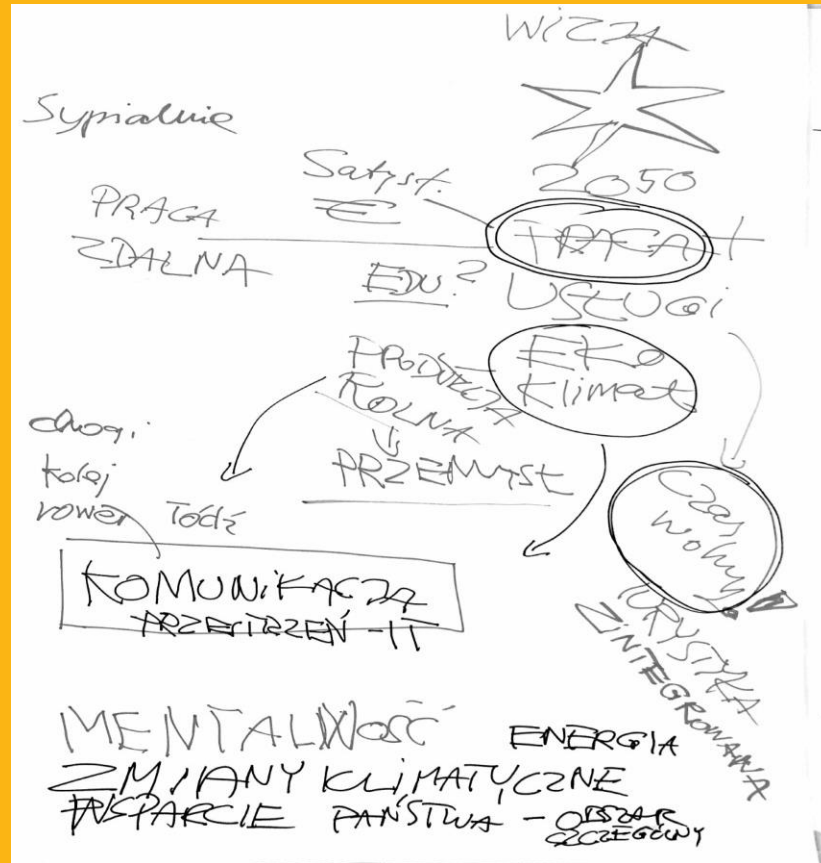 WIZJA
Sypialnie
2050
Satysf.
€
PRACA
ZDALNA
PRACA
EDU?
USŁUGI
EKO
Klimat
PRODUKCJA
ROLNA
PRZEMYSŁ
drogi
kolej
rower łódź
Czas
wolny
KOMUNIKACJA
PRZESTRZEŃ - IT
TURYSTYKA
ZINTEGROWANA
MENTALNOŚĆ
ENERGIA
ZMIANY KLIMATYCZNE
WSPARCIE PAŃSTWA - OBSZAR
SZCZEGÓLNY